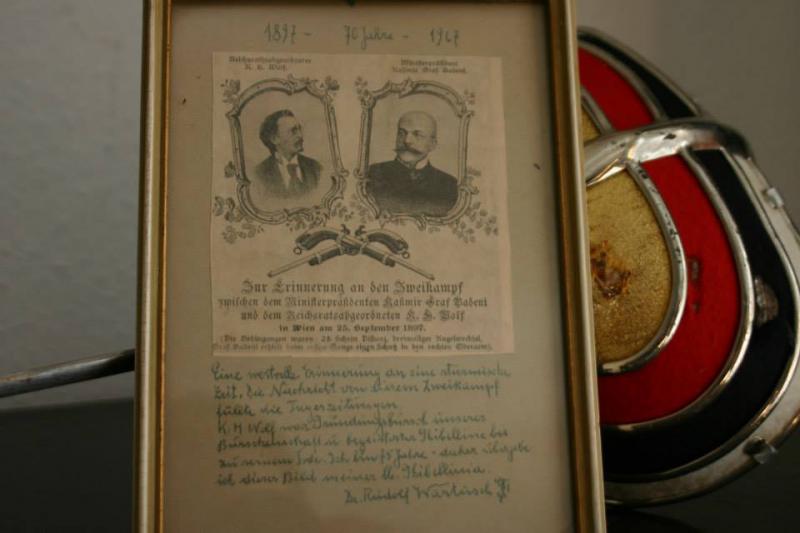 1897 - 70 Jahre - 1967
Reichsratsabgeordneter
K. H. Wolf.
Ministerpräsident
Kasimir Graf Badeni.
Zur Erinnerung an den Zweikampf
zwischen dem Ministerpräsidenten Kasimir Graf Badeni
und dem Reichsratsabgeordneten K. H. Wolf
in Wien am 25. September 1897.
(Die Bedingungen waren: 25 Schritt Distanz, dreimaliger Kugelwechsel,
Graf Badeni erhielt beim ersten Gange einen Schuß in den rechten Oberarm).
Eine wertvolle Erinnerung an eine stürmische
Zeit, die Nachricht von diesem Zweikampf
füllte die Tageszeitungen.
K. H Wolf war Gründungsbursch unserer
Burschenschaft u. begeisterter Ghibelline bis
zu seinem Tode. Ich bin 75 Jahre - daher übergebe
ich dieses Bild meiner lb. Ghibellinia.
Dr. Rudolf Wartusch